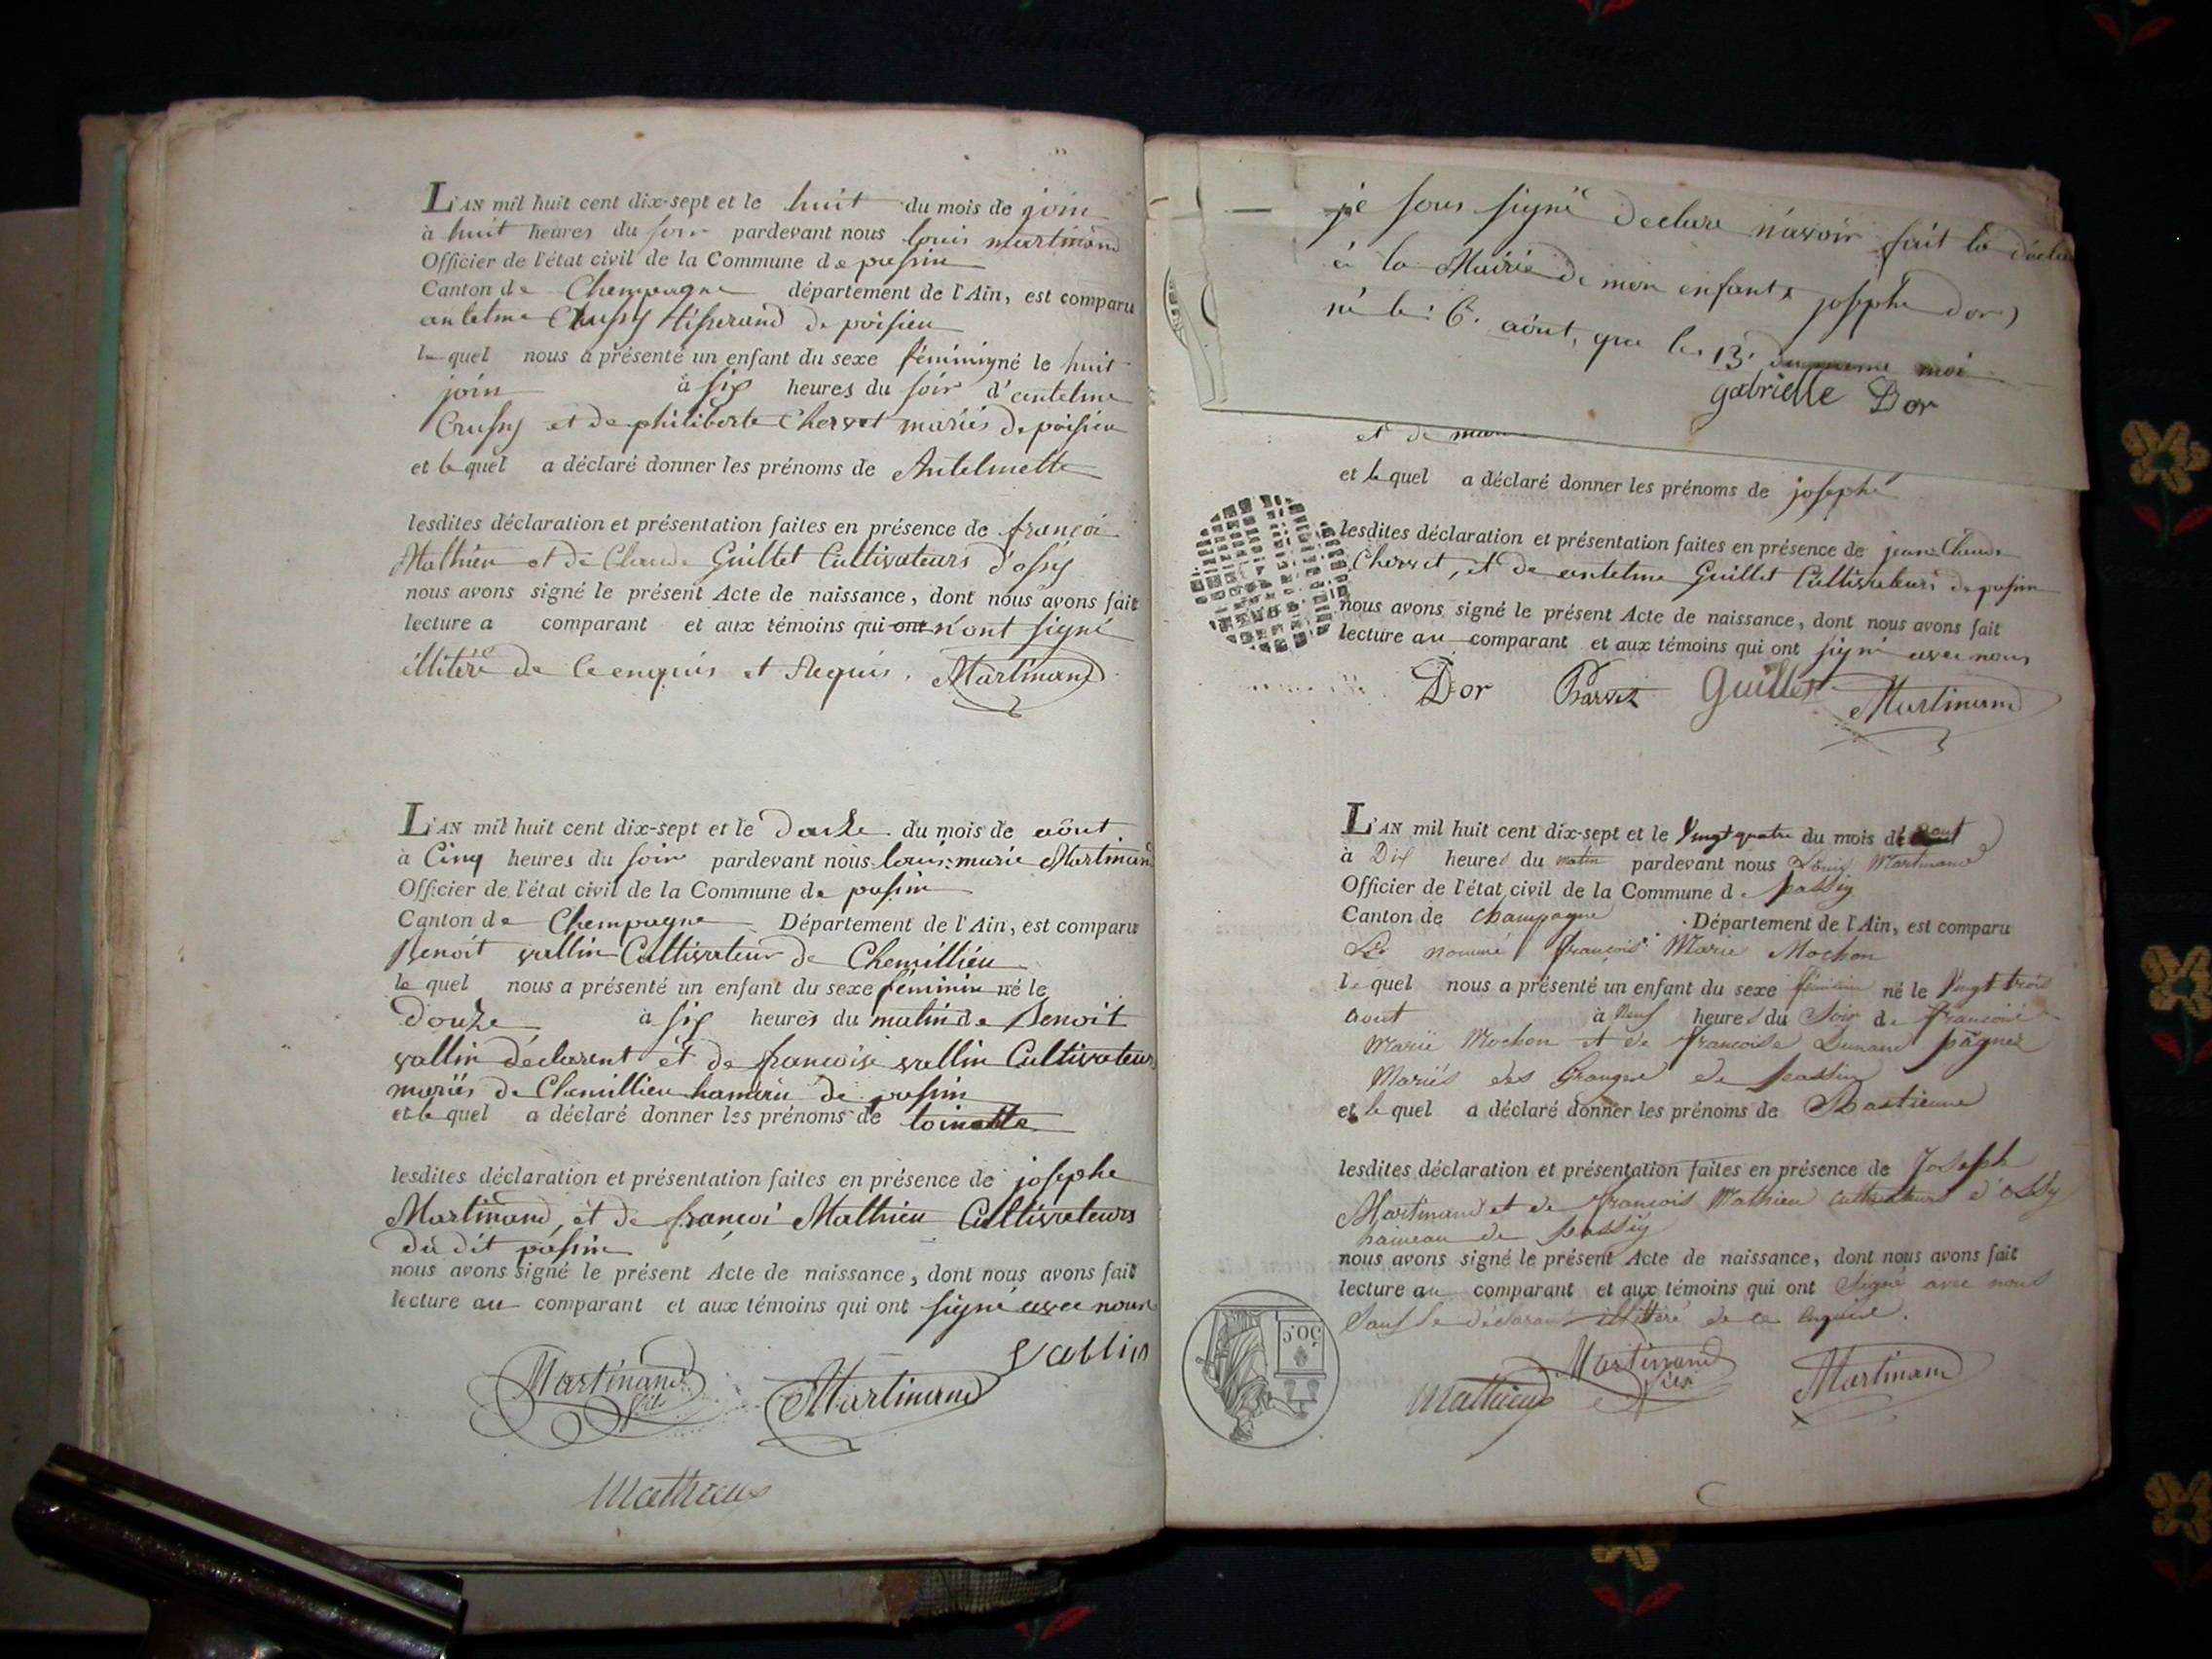 L'AN mil huit cent dix-sept et le huit du mois de join
à huit heures du soir pardevant nous louis martinand
Officier de l'état civil de la Commune de passin
Canton de Champagne département de l'Ain, est comparu
antelme Crussy tisserand de poisieu
le quel nous a présenté un enfant du sexe féminin né le huit
join à six heures du soir d'antelme
Crussy et de philiberte Chervet mariés de poisieu
et le quel a déclaré donner les prénoms de Antelmette
lesdites déclaration et présentation faites en présence de françoi
Mathieu et de Claude Guillet Cultivateurs d'ossy
nous avons signé le présent Acte de naissance, dont nous avons fait
lecture a comparant et aux témoins qui ont n'ont signé
illitéré de ce enquis et Requis. Martinand
L'AN mil huit cent dix-sept et le douze du mois de août
à Cinq heures du soir pardevant nous louis marie Martinand
Officier de l'état civil de la Commune de passin
Canton de Champagne Département de l'Ain, est comparu
Benoit vallin Cultivateur de Chemillieu
le quel nous a présenté un enfant du sexe féminin né le
douze à six heures du matin de Benoit
vallin déclarent et de francoise vallin Cultivateurs
mariés de Chemillieu hameau de passin
et le quel a déclaré donner les prénoms de toinette
lesdites déclaration et présentation faites en présence de josephe
Martinand, et de françoi Mathieu Cultivateurs
du dit passin
nous avons signé le présent Acte de naissance, dont nous avons fait
lecture au comparant et aux témoins qui ont signé avec nous
Vallin
Martinand fils Martinand
Mathieu
je sous signé declare n'avoir fait la déclar
à la Mairie de mon enfant josephe dor
né le 6. août, que le 13. du meme moi
gabrielle Dor
et de
et le quel a déclaré donner les prénoms de josephe
lesdites déclaration et présentation faites en présence de jean Claude
Chervet, et de antelme Guillet Cultivateurs de passin
nous avons signé le présent Acte de naissance, dont nous avons fait
lecture au comparant et aux témoins qui ont signé avec nous
Dor Charvet Guillet Martinand
L'AN mil huit cent dix-sept et le Vingt quatre du mois de aout
à Dix heures du matin pardevant nous Louis Martinand
Officier de l'état civil de la Commune de passin
Canton de Champagne Département de l'Ain, est comparu
Le nommé françois Marie Mochon
le quel nous a présenté un enfant du sexe féminin né le Vingt trois
aout à neuf heures du Soir de françois
Marie Mochon et de francoise Dunand
Mariés des Granges de passin
et le quel a déclaré donner les prénoms de Bastienne
lesdites déclaration et présentation faites en présence de Joseph
Martinand et de françois Mathieu cultivateurs d'ossy
hameau de passin
nous avons signé le présent Acte de naissance, dont nous avons fait
lecture au comparant et aux témoins qui ont Signé avec nous
Sauf le déclarant illittéré de ce enquis.
Mathieu Martinand fils Martinand
50 C